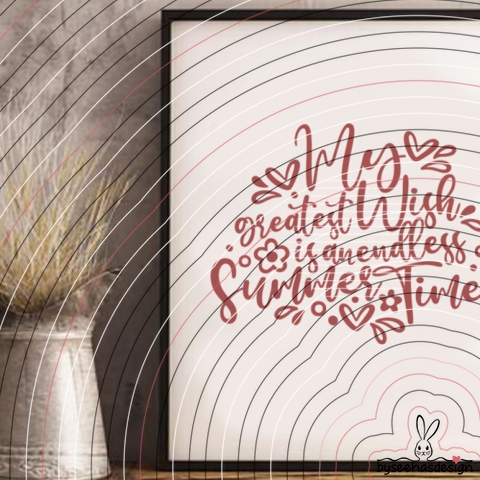 My
greatest Wish
is an endless
Summer Time
byseehasdesign